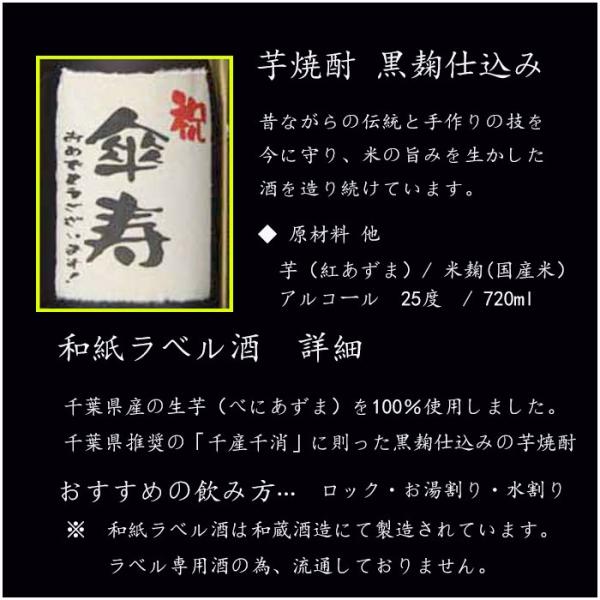 祝
傘寿
おめでとうございます!
芋焼酎 黒麹仕込み
昔ながらの伝統と手作りの技を
今に守り、米の旨みを生かした
酒を造り続けています。
◆ 原材料 他
芋(紅あずま)/ 米麹(国産米)
アルコール 25度 / 720ml
和紙ラベル酒 詳細
千葉県産の生芋(べにあずま)を100%使用しました。
千葉県推奨の「千産千消」に則った黒麹仕込みの芋焼酎
おすすめの飲み方… ロック・お湯割り・水割り
※ 和紙ラベル酒は和蔵酒造にて製造されています。
ラベル専用酒の為、流通しておりません。